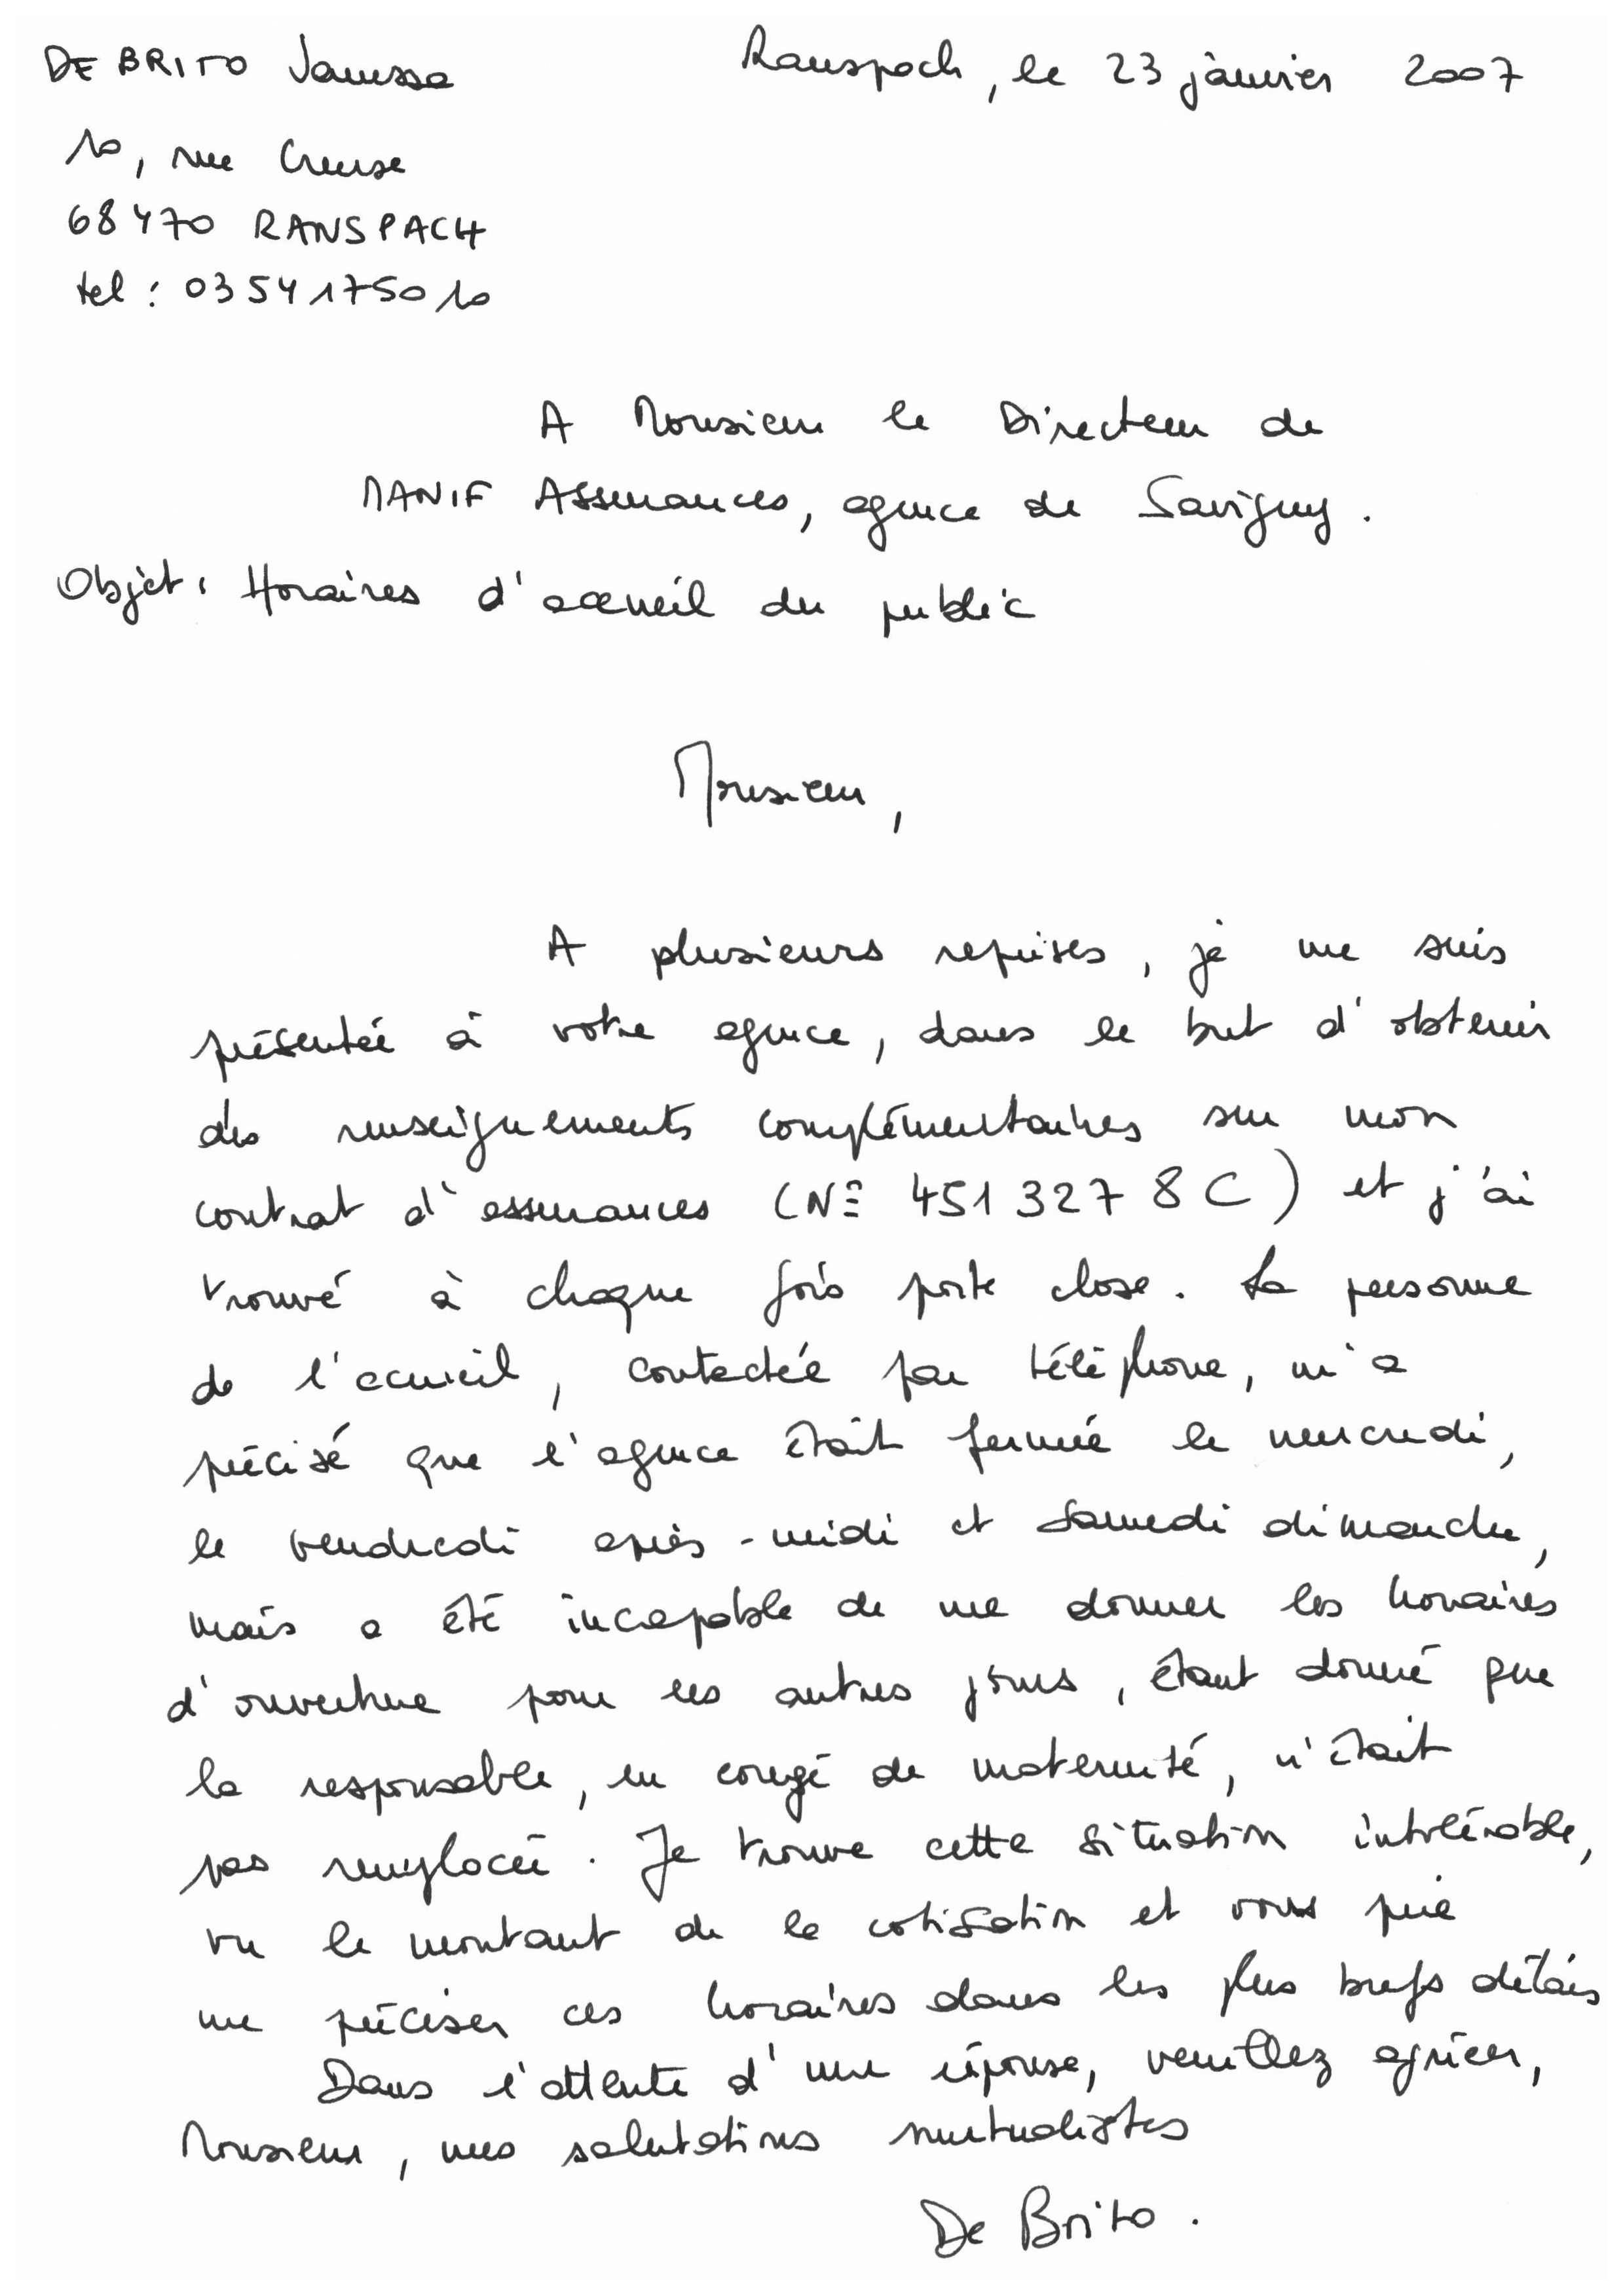 DE BRITO Vanessa
Ranspach, le 23 janvier 2007
10, rue Creuse
68470 RANSPACH
tel : 0354175010
A Monsieur le Directeur de
MANIF Assurances, agence de Savigny.
Objet : Horaires d'accueil du public
Monsieur,
A plusieurs reprises, je me suis
présentée à votre agence, dans le but d'obtenir
des renseignements complémentaires sur mon
contrat d'assurances (N° 451 327 8 C) et j'ai
trouvé à chaque fois porte close. La personne
de l'accueil, contactée par téléphone, m'a
précisé que l'agence était fermée le mercredi,
le vendredi après-midi et samedi dimanche,
mais a été incapable de me donner les horaires
d'ouverture pour les autres jours, étant donné que
la responsable, en congé de maternité, n'était
pas remplacée. Je trouve cette situation intolérable,
vu le montant de la cotisation et vous prie
me préciser ces horaires dans les plus brefs délais
Dans l'attente d'une réponse, veuillez agréer,
Monsieur, mes salutations mutualistes
De Brito.